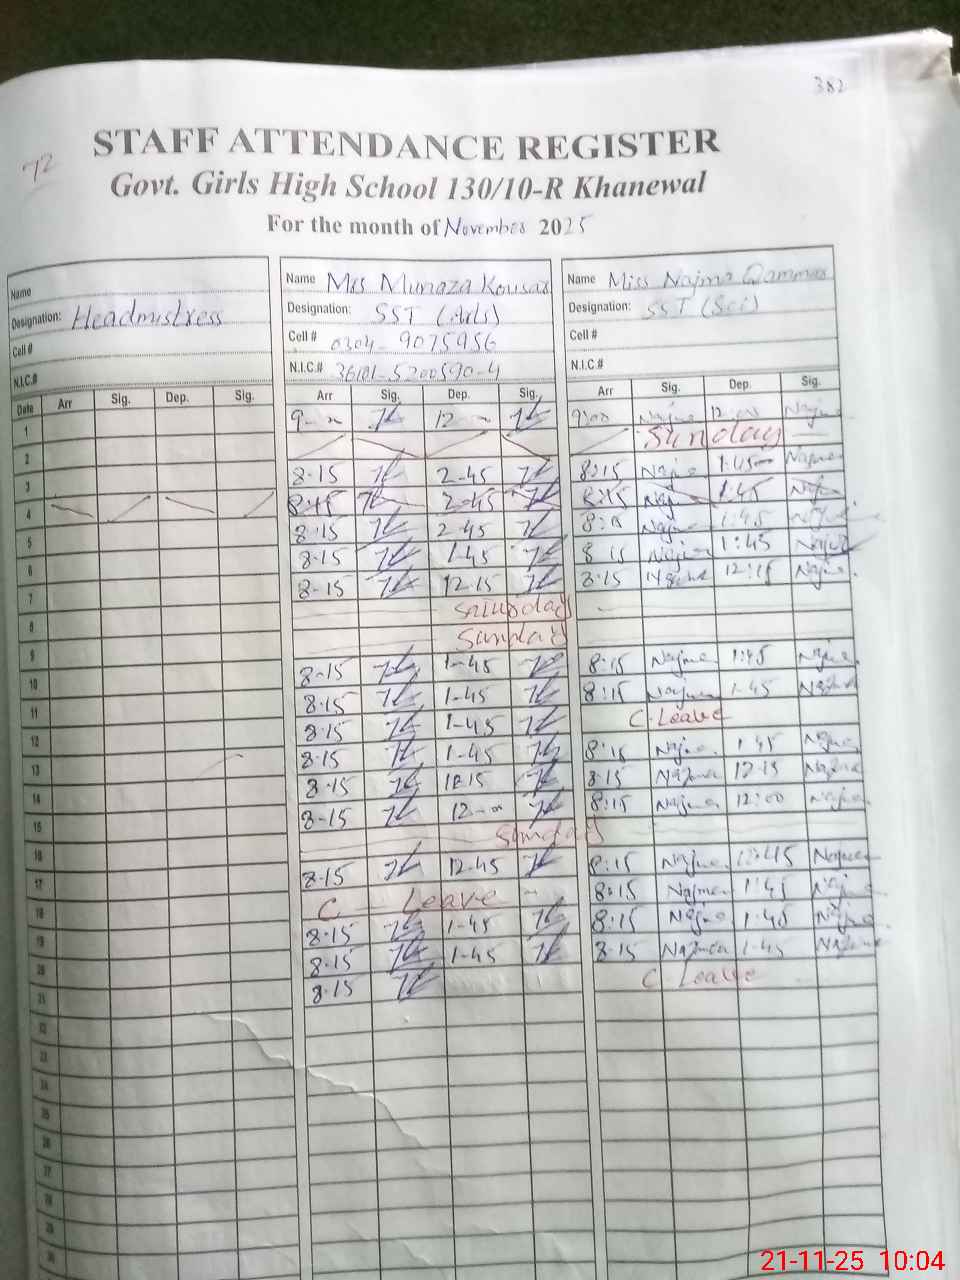 382
72
STAFF ATTENDANCE REGISTER
Govt. Girls High School 130/10-R Khanewal
For the month of November 2025
Name Name Mrs Munaza Kousar Name Miss Najma Qammar
Designation: Headmistress Designation: SST (Arts) Designation: SST (Sci)
Cell # Cell # 0304-9075956 Cell #
N.I.C.# N.I.C.# 36101-5200590-4 N.I.C.#
Date Arr Sig. Dep. Sig. Arr Sig. Dep. Sig. Arr Sig. Dep. Sig.
1 9-00 12-00 9:00 Najma 12:00 Najma
2 Sunday
3 8-15 2-45 8:15 Najma 1:45 Najma
4 8:15 2-45 8:15 Naj 1:45
5 8-15 2-45 8:15 Najma 1:45
6 8-15 1-45 8:15 Najma 1:45 Najma
7 8-15 12-15 8:15 Najma 12:15 Najma
8 Saturday
9 Sunday
10 8-15 1-45 8:15 Najma 1:45 Najma
11 8-15 1-45 8:15 Najma 1-45 Najma
12 8-15 1-45 C-Leave
13 8-15 1-45 8:15 Najma 1:45 Najma
14 8-15 12-15 8:15 Najma 12-15 Najma
15 8-15 12-00 8:15 Najma 12:00 Najma
16 Sunday
17 8-15 12-45 8:15 Najma 12:45 Najma
18 C-Leave 8:15 Najma 1:45 Najma
19 8-15 1-45 8:15 Najma 1:45 Najma
20 8-15 1-45 8-15 Najma 1-45 Najma
21 8-15 C-Leave
22
23
24
25
26
27
28
29
30
21-11-25 10:04